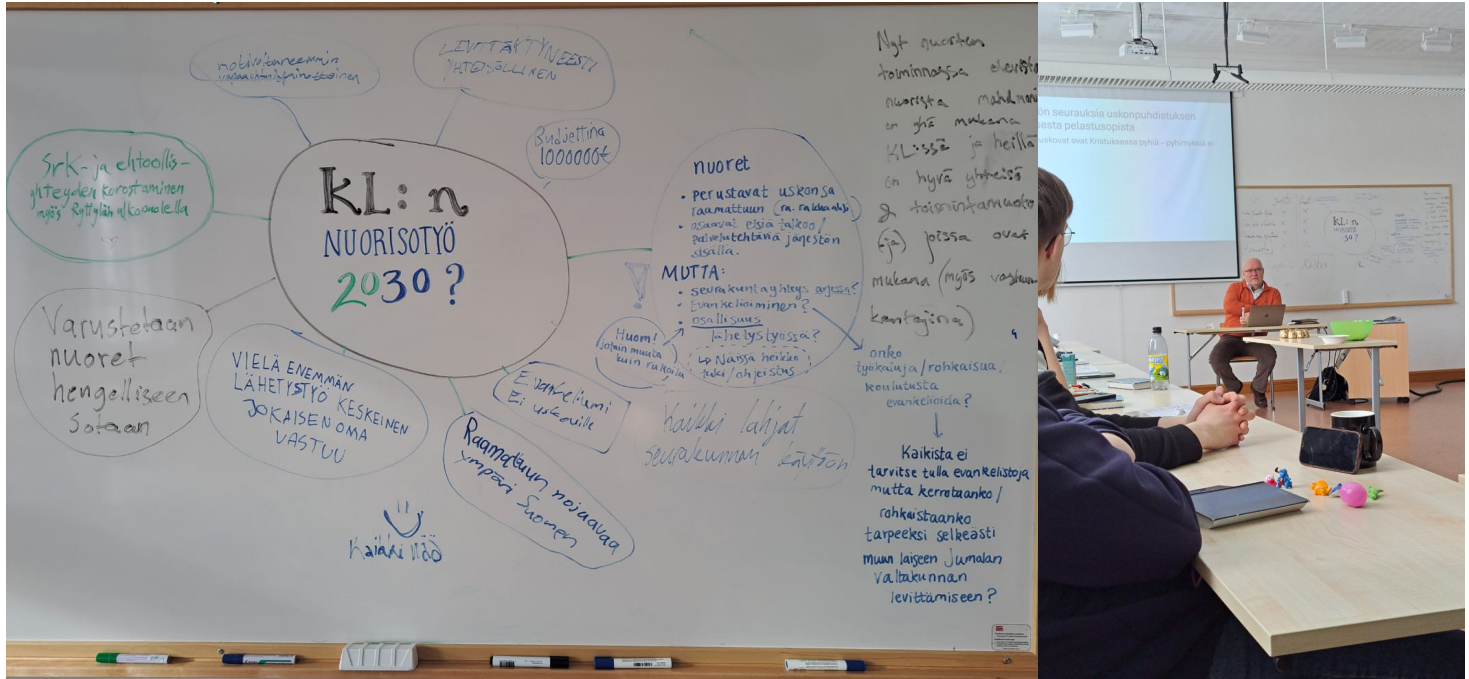 motivoituneemmin
vapaaehtoispainotteinen
LEVITTÄYTYNEESTI
YHTEISÖLLINEN
Budjettina
1000000€
Srk- ja ehtoollis-
yhteyden korostaminen
myös Ryttylän ulkopuolella
KL:n
NUORISOTYÖ
2030?
Varustetaan
nuoret
hengelliseen
Sotaan
VIELÄ ENEMMÄN
LÄHETYSTYÖ KESKEINEN
JOKAISEN OMA
VASTUU
Evankeliumi
Ei uskoville
Raamattuun nojaavaa
ympäri Suomen
Kaikki nää
nuoret
• perustavat uskonsa
raamattuun
• osaavat etsiä talkoo/
palvelutehtäviä järjestön
sisällä.
MUTTA:
• seurakuntayhteys arjessa?
• Evankelioiminen?
• osallisuus
lähetystyössä?
↳ Näissä heikko
tuki/ohjeistus
Huom!
jotain muuta
kuin rukoilla
Kaikki lahjat
seurakunnan käyttöön
Nyt nuorten
toiminnassa
nuorista
on yhä mukana
KL:ssä ja heillä
on hyvä yhteisö
& toimintamuoto
(ja) joissa ovat
mukana (myös
kantajina)
onko
työkaluja/rohkaisua,
koulutusta
evankelioida?
Kaikista ei
tarvitse tulla evankelistoja
mutta kerrotaanko/
rohkaistaanko
tarpeeksi selkeästi
muun laiseen Jumalan
valtakunnan
levittämiseen?
ön seurauksia uskonpuhdistuksen
esta pelastusopista
uskovat ovat Kristuksessa pyhiä – pyhimyksiä ei
KL:n
NUORISOTYÖ
2030?